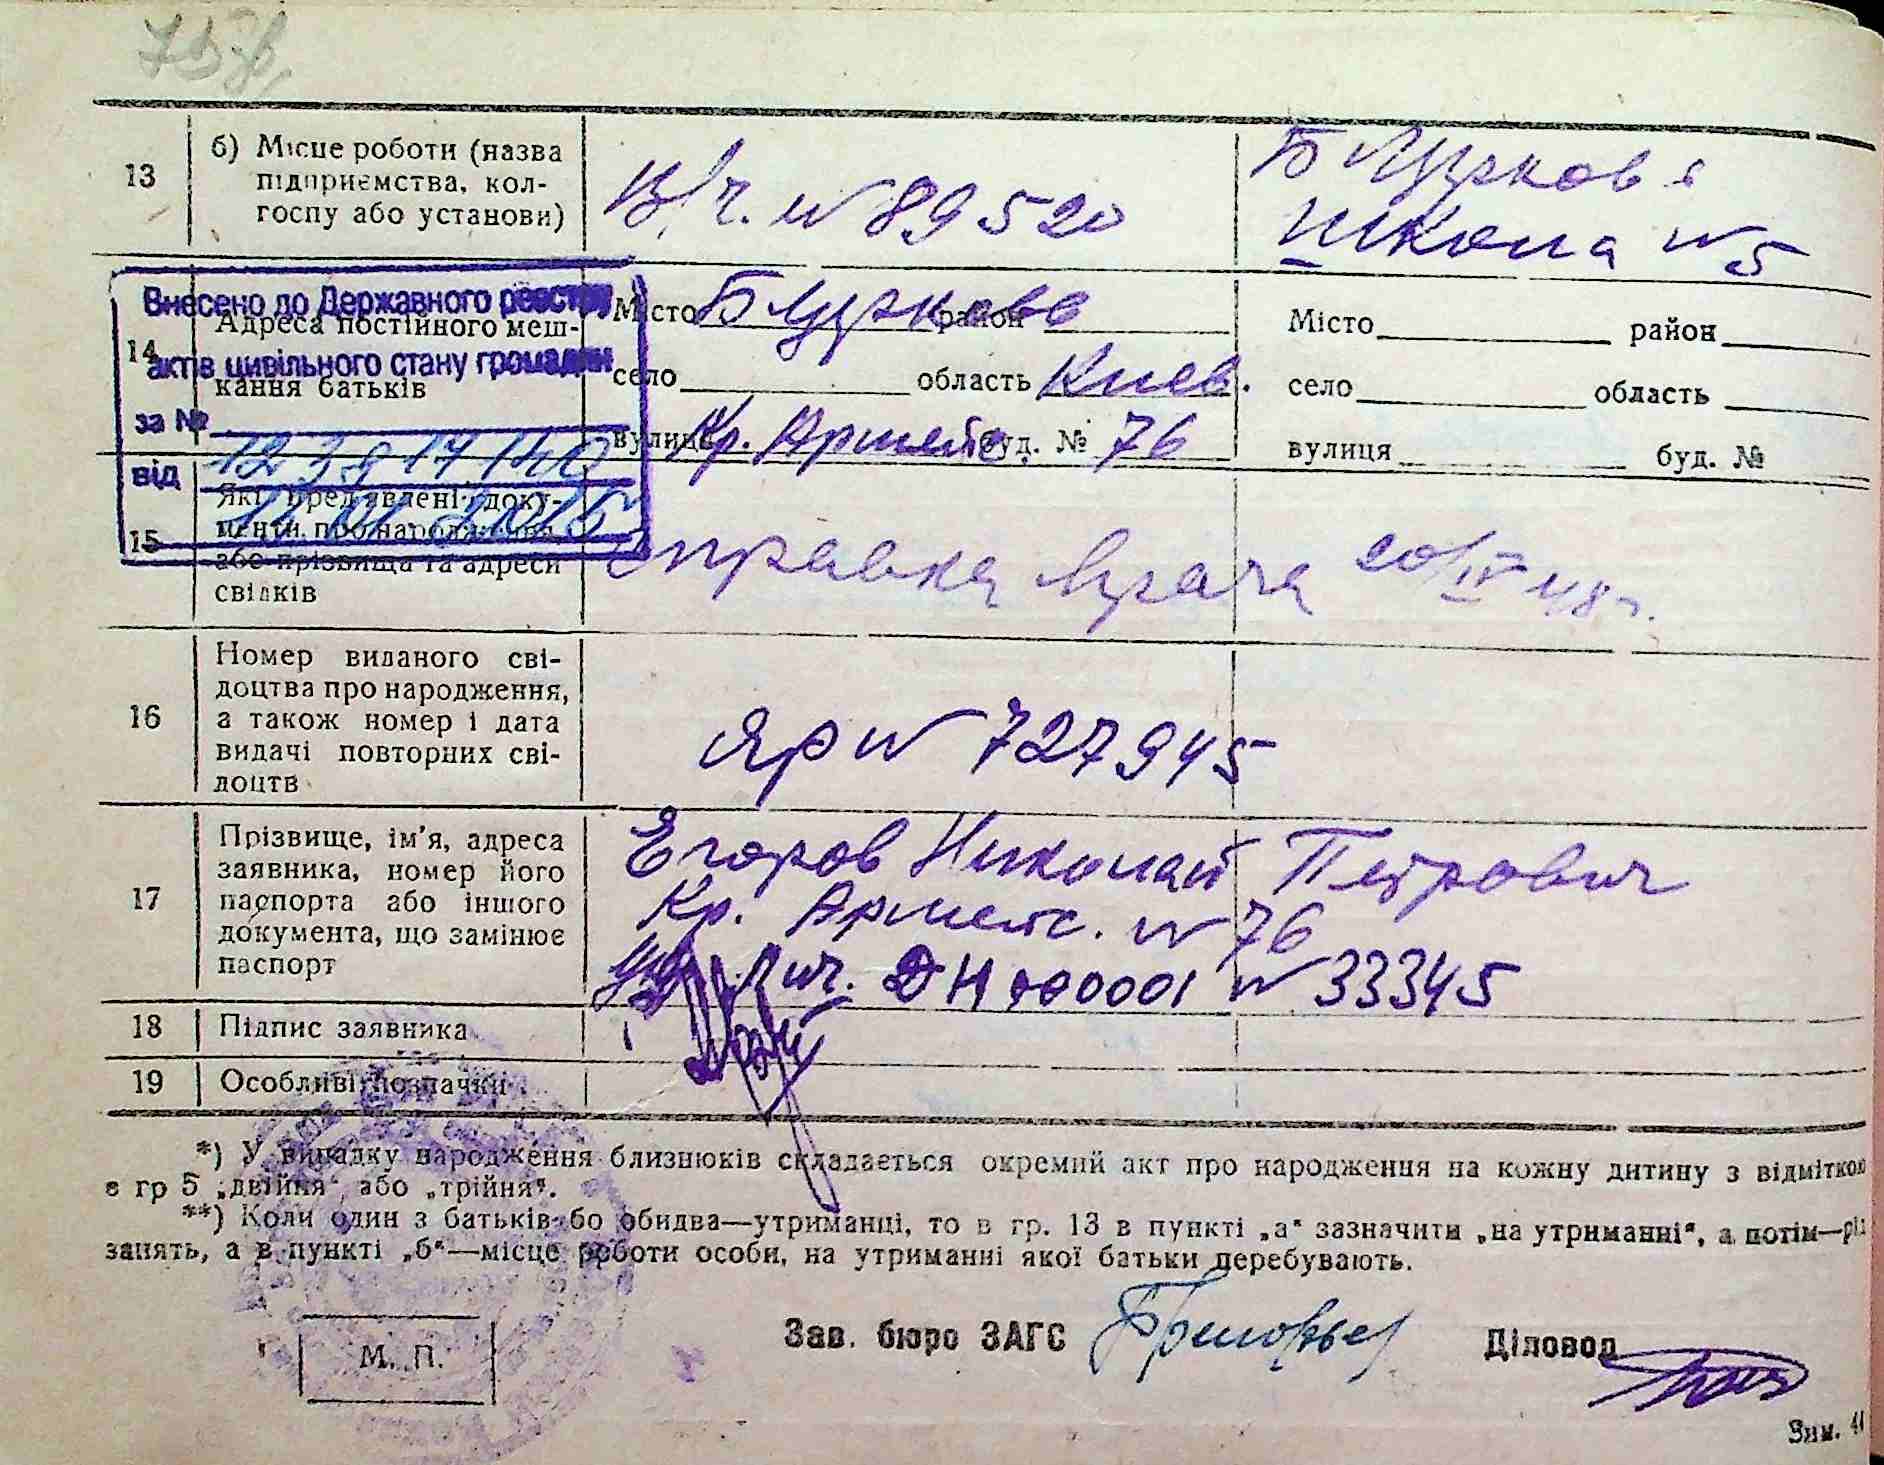 13
б) Місце роботи (назва
підприємства, кол-
госпу або установи)
В/ч. N 89520
Б Церковь
Школа N 5
Внесено до Державного реєстру
актів цивільного стану громадян
за №
від
14
Адреса постійного меш-
кання батьків
Місто Б Церковь район
село область Киев.
вулиця Кр. Армейс. буд. № 76
Місто район
село область
вулиця буд. №
15
Які пред'явлені доку-
менти про народження
або прізвища та адреси
свідків
Справка врача 20/IV 48 г.
16
Номер виданого сві-
доцтва про народження,
а також номер і дата
видачі повторних сві-
доцтв
ЯР N 727945
17
Прізвище, ім'я, адреса
заявника, номер його
паспорта або іншого
документа, що замінює
паспорт
Егоров Николай Петрович
Кр. Армейс. N 76
Уд. Лич. N 33345
18 Підпис заявника
19 Особливі позначки
*) У випадку народження близнюків складається окремий акт про народження на кожну дитину з відміткою
в гр 5 „двійня“ або „трійня“.
**) Коли один з батьків бо обидва—утриманці, то в гр. 13 в пункті „а“ зазначити „на утриманні“, а потім—рід
занять, а в пункті „б“—місце роботи особи, на утриманні якої батьки перебувають.
М. П.
Зав. бюро ЗАГС
Діловод
Зим.